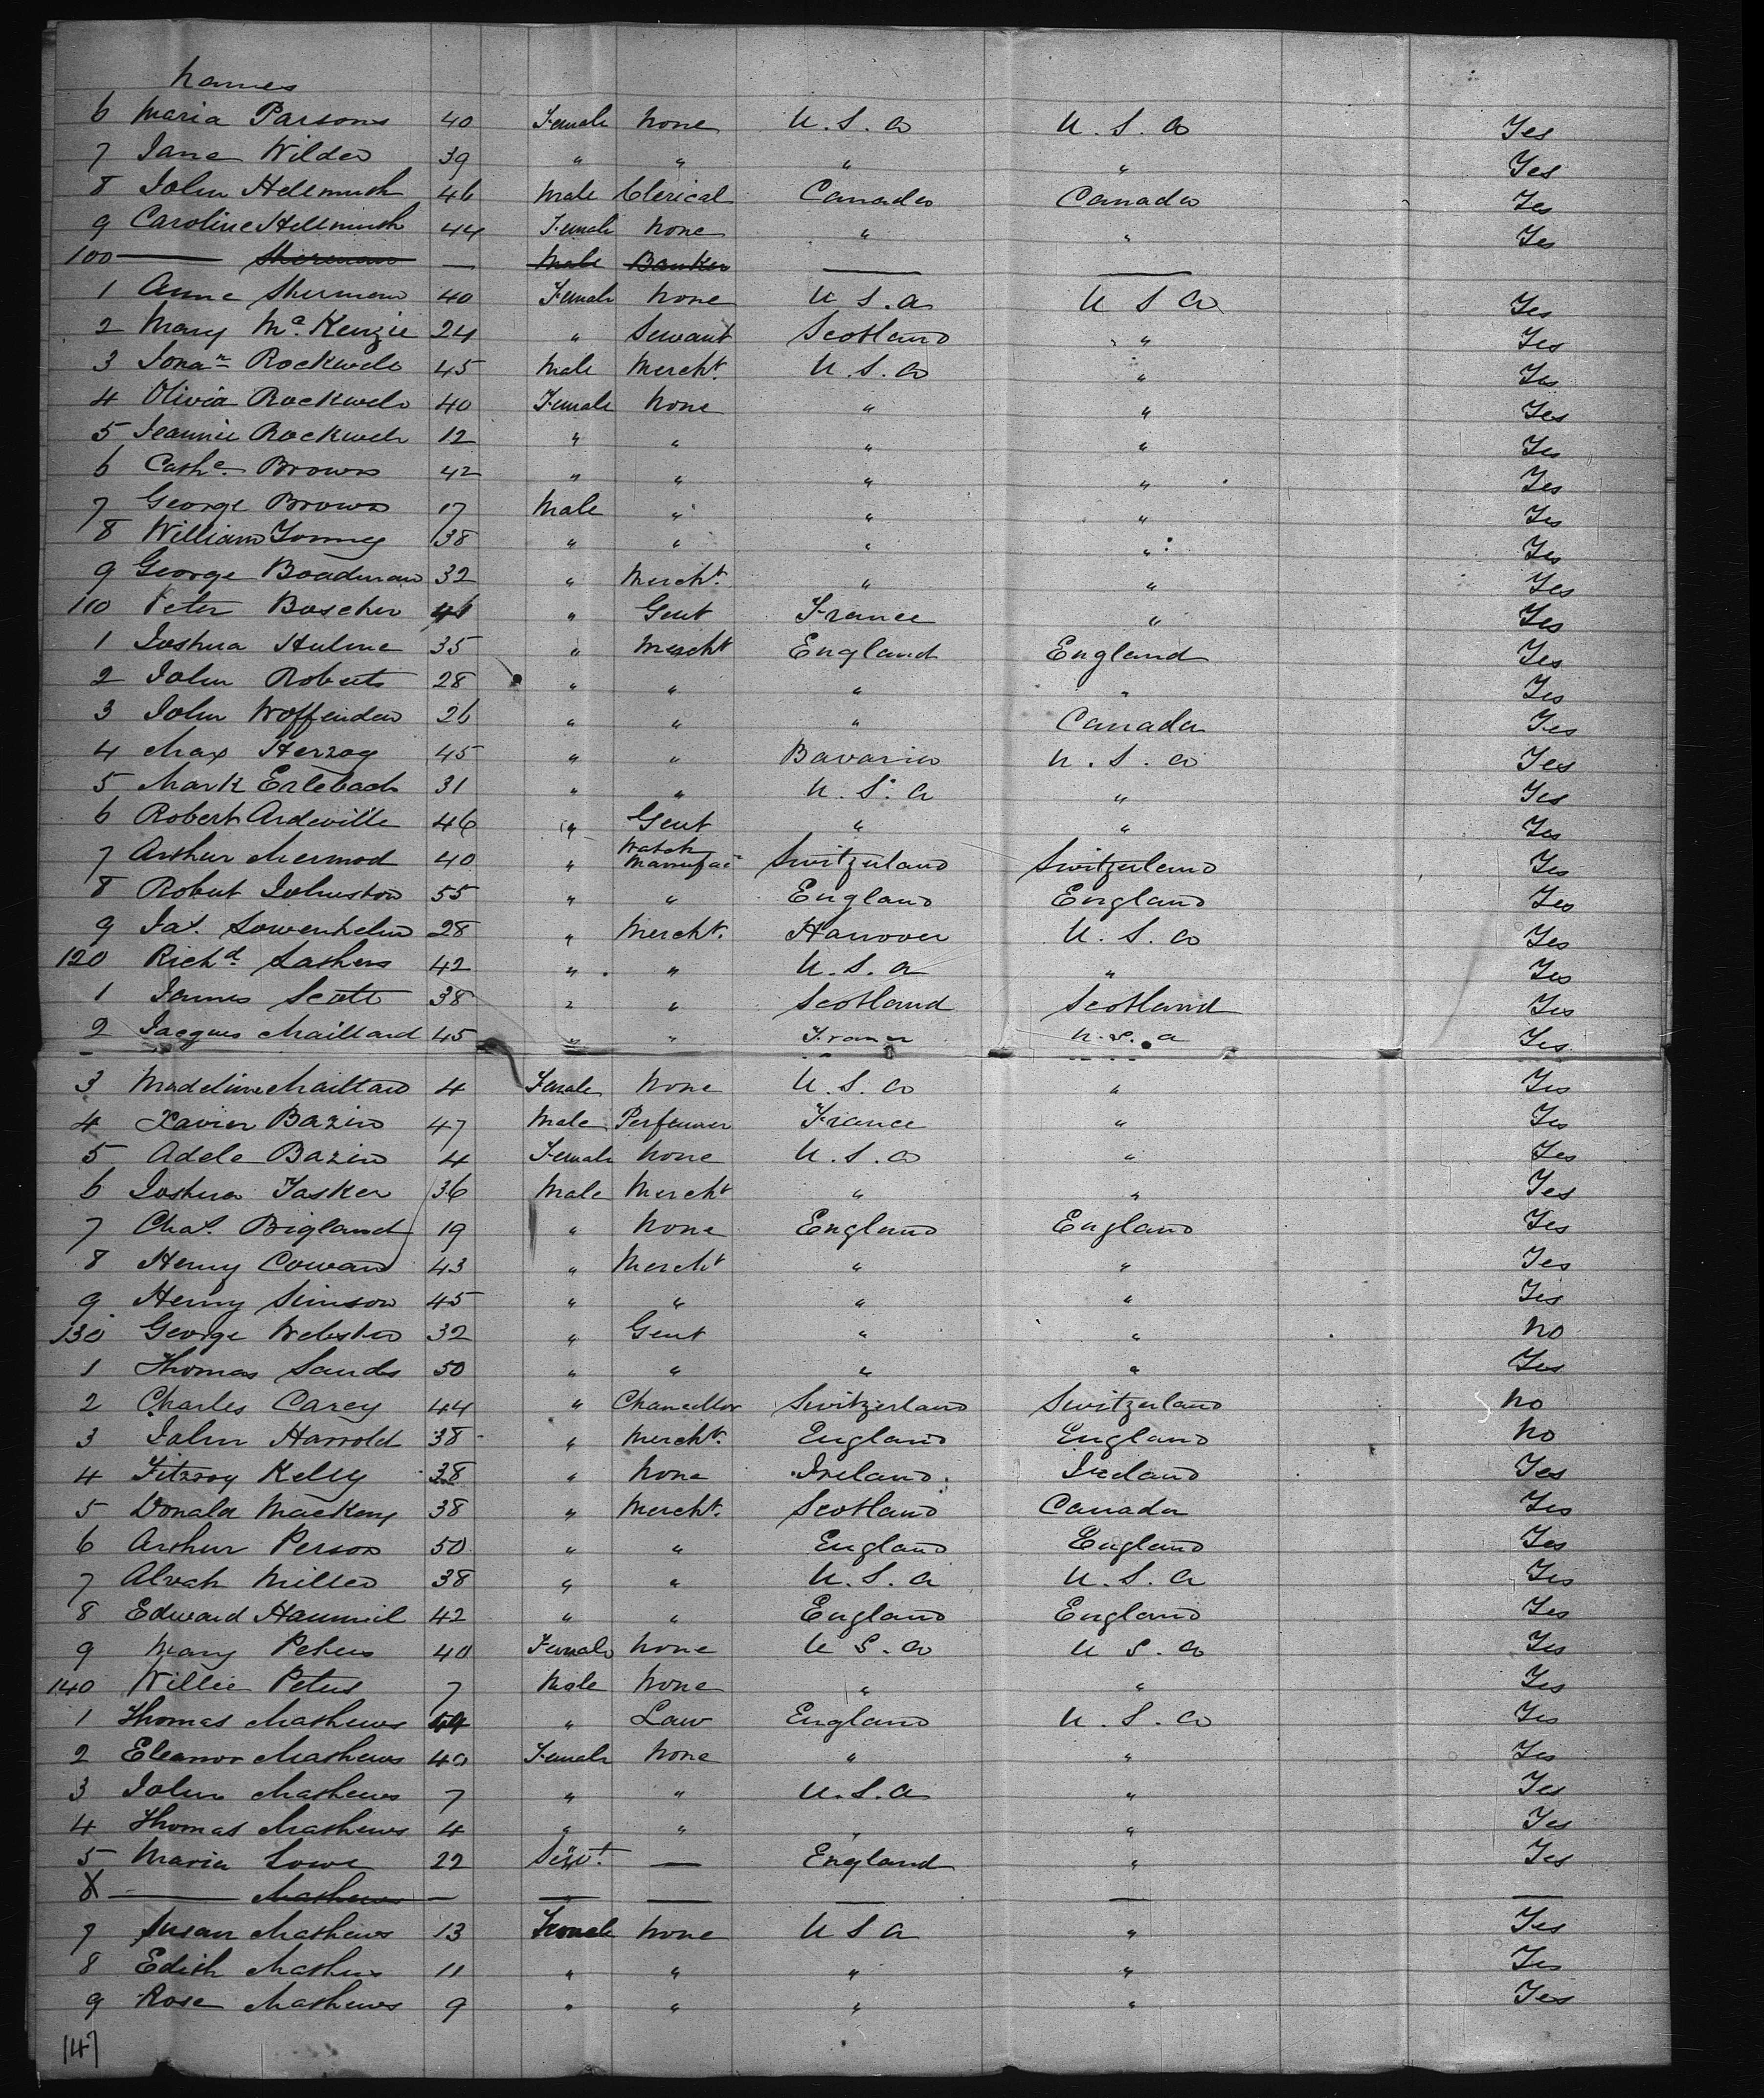 Names
6 Maria Parsons 40 Female None U.S.a U.S.a Yes
7 Jane Wilder 39 " " " " Yes
8 John Hellmuth 46 Male Clerical Canada Canada Yes
9 Caroline Hellmuth 44 Female None " " Yes
100 — Sherman — Male Banker — —
1 Anne Sherman 40 Female None U S.a U S a Yes
2 Mary McKenzie 24 " Servant Scotland " Yes
3 Jonan Rockwell 45 Male Mercht. U.S.a " Yes
4 Olivia Rockwell 40 Female None " " Yes
5 Jeannie Rockwell 12 " " " " Yes
6 Cathe. Brown 42 " " " " Yes
7 George Brown 17 Male " " " Yes
8 William Young 38 " " " " Yes
9 George Boadman 32 " Mercht. " " Yes
110 Peter Boscher " Gent France " Yes
1 Joshua Hulme 35 " Mercht England England Yes
2 John Roberts 28 " " " " Yes
3 John Woffenden 26 " " " Canada Yes
4 Max Herzog 45 " " Bavaria U.S.a Yes
5 Mark Erlebach 31 " " U.S.a " Yes
6 Robert Ardeville 46 " Gent " " Yes
7 Arthur Mermod 40 " Watch Manufac Switzerland Switzerland Yes
8 Robert Johnston 55 " " England England Yes
9 Jas. Lowenhelm 28 " Mercht. Hanover U.S.a Yes
120 Richd. Lathers 42 " " U.S.a " Yes
1 James Scott 38 " " Scotland Scotland Yes
2 Jacques Maillard 45 " " France U.S.a Yes
3 Madeline Maillard 4 Female None U.S.a " Yes
4 Xavier Bazin 47 Male Perfumer France " Yes
5 Adele Bazin 4 Female None U.S.a " Yes
6 Joshua Tasker 36 Male Mercht " " Yes
7 Chas. Bigland 19 " None England England Yes
8 Henry Cowan 43 " Mercht " " Yes
9 Henry Simson 45 " " " " Yes
130 George Webster 32 " Gent " " No
1 Thomas Sands 50 " " " " Yes
2 Charles Carey 44 " Chancellor Switzerland Switzerland No
3 John Harrold 38 " Mercht. England England No
4 Fitzroy Kelly 38 " None Ireland Ireland Yes
5 Donald Mackay 38 " Mercht. Scotland Canada Yes
6 Arthur Person 50 " " England England Yes
7 Alvah Miller 38 " " U.S.a U.S.a Yes
8 Edward 42 " " England England Yes
9 Mary Peters 40 Female None U S.a U S.a Yes
140 Willie Peters 7 Male None " " Yes
1 Thomas Mathews 44 " Law England U.S.a Yes
2 Eleanor Mathews 40 Female None " " Yes
3 John Mathews 7 " " U.S.a " Yes
4 Thomas Mathews 4 " " " " Yes
5 Maria Lowe 22 Servt. — England " Yes
— Mathews — — — — — —
7 Susan Mathews 13 Female None U S a " Yes
8 Edith Mathews 11 " " " " Yes
9 Rose Mathews 9 " " " " Yes
147